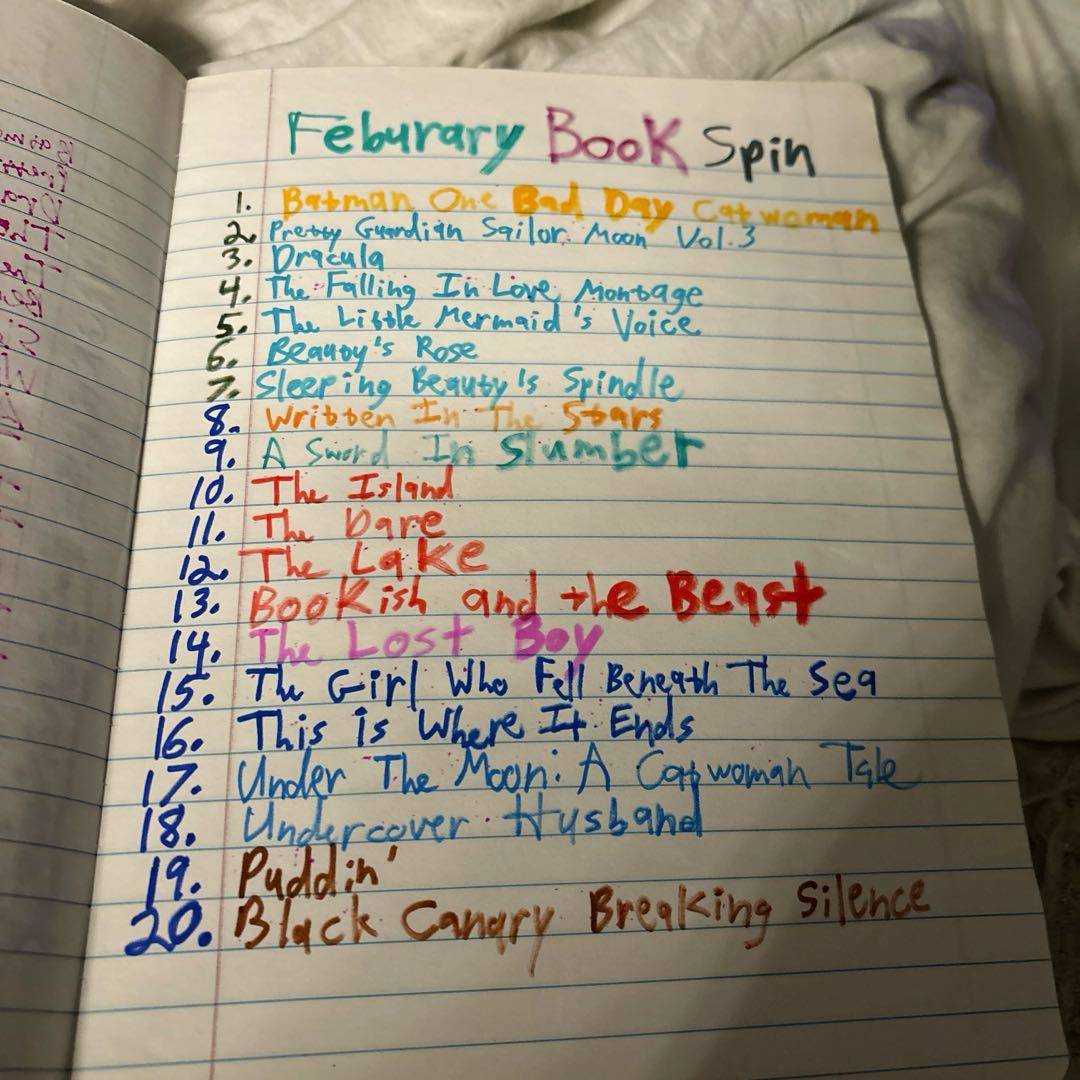 Feburary Book Spin
1. Batman One Bad Day Catwoman
2. Pretty Guardian Sailor Moon Vol. 3
3. Dracula
4. The Falling In Love Montage
5. The Little Mermaid's Voice
6. Beauty's Rose
7. Sleeping Beauty's Spindle
8. Written In The Stars
9. A Sword In Slumber
10. The Island
11. The Dare
12. The Lake
13. Bookish and the Beast
14. The Lost Boy
15. The Girl Who Fell Beneath The Sea
16. This is Where It Ends
17. Under The Moon: A Catwoman Tale
18. Undercover Husband
19. Puddin'
20. Black Canary Breaking Silence